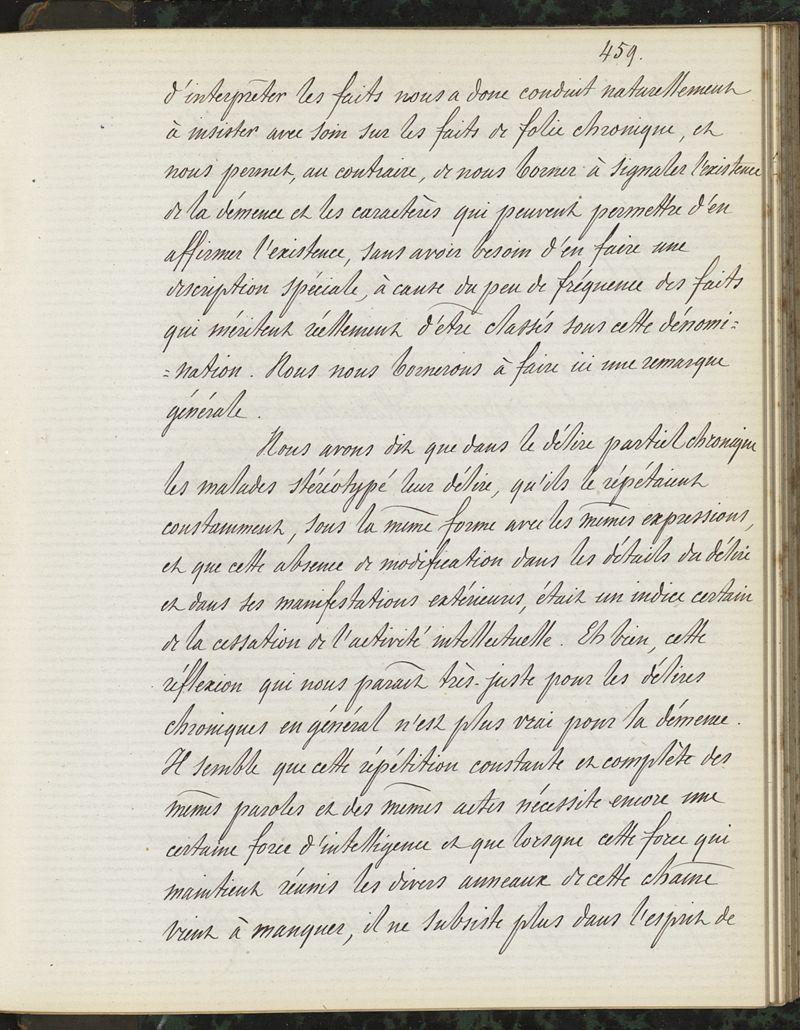 459.
d'interprêter les faits nous a donc conduit naturellement
à insister avec soin sur les faits de folie chronique, et
nous permet, au contraire, de nous borner à signaler l'existence
de la démence et les caractères qui peuvent permettre d'en
affirmer l'existence, sans avoir besoin d'en faire une
description spéciale, à cause du peu de fréquence des faits
qui méritent réellement d'être classés sous cette dénomi=
=nation. Nous nous bornerons à faire ici une remarque
générale.
Nous avons dit que dans le délire partiel chronique
les malades stéréotypé leur délire, qu'ils le répétaient
constamment, sous la même forme avec les mêmes expressions,
et que cette absence de modification dans les détails du délire
et dans ses manifestations extérieures, était un indice certain
de la cessation de l'activité intellectuelle. Eh bien, cette
réflexion qui nous paraît très-juste pour les délires
chroniques en général n'est plus vrai pour la démence.
Il semble que cette répétition constante et complète des
mêmes paroles et des mêmes actes nécessite encore une
certaine force d'intelligence et que lorsque cette force qui
maintient réunis les divers anneaux de cette chaîne
vient à manquer, il ne subsiste plus dans l'esprit de